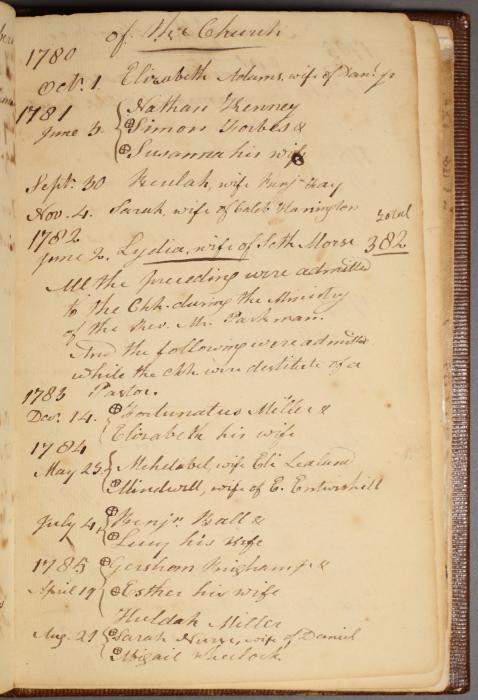 of the Church
1780
Oct. 1. Elizabeth Adams, wife of Dan. jr
1781 Nathan Kenney
June 3. ⊕Simon Forbes &
⊕Susanna his wife
Sept. 30 Beulah, wife Benj. Fay
Nov. 4. Sarah, wife of Caleb Harrington
1782 Total
June 2. Lydia, wife of Seth Morse 382
All the preceding were admitted
to the Chh. during the Ministry
of the Rev. Mr. Parkman.
And the following were admitted
while the Chh were destitute of a
Pastor.
1783
Dec. 14. ⊕Fortunatus Miller &
Elizabeth his wife
1784
May 23. Mehetabel, wife Eli Lealand
⊕Mindwell, wife of E. Entwishill
July 4, ⊕Benjn. Ball &
⊕Lucy his wife
1785 ⊕Gershom Brigham jr &
April 19 ⊕Esther his wife
Huldah Miller
Aug. 21 ⊕Sarah Nurse, wife of Daniel
⊕Abigail Wheelock